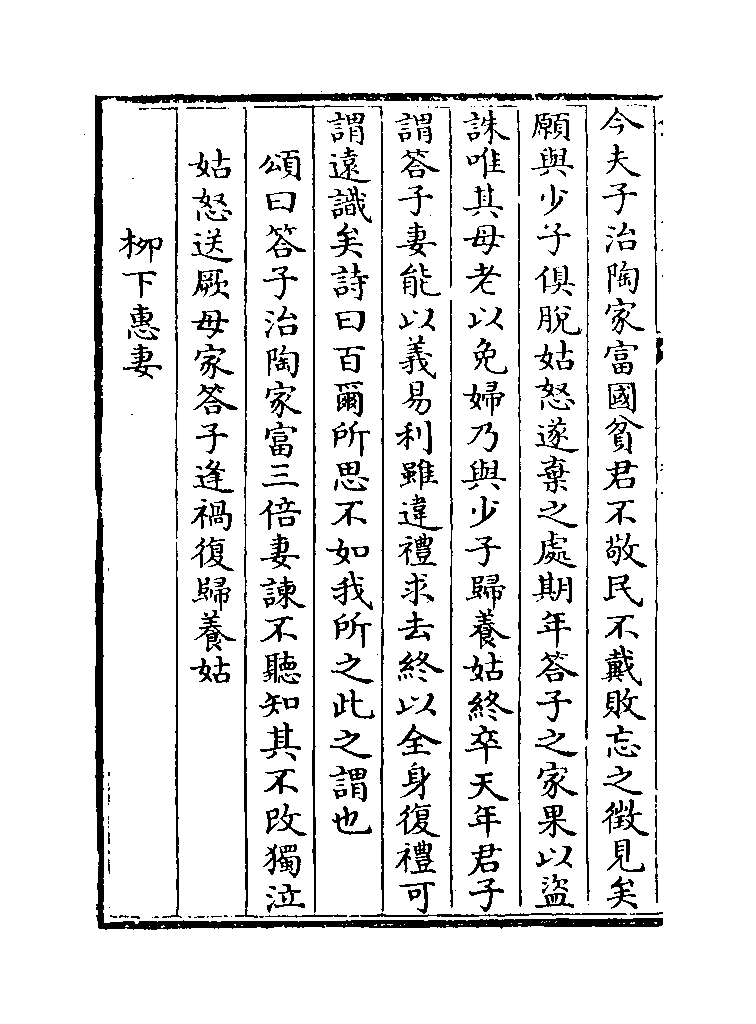 今夫子治陶家富國貧君不敬民不戴敗忘之徴見矣
願與少子俱脫姑怒遂棄之處期年答子之家果以盜
誅唯其母老以免婦乃與少子歸養姑終卒天年君子
謂答子妻能以義易利雖違禮求去終以全身復禮可
謂遠識矣詩曰百爾所思不如我所之此之謂也
頌曰答子治陶家富三倍妻諫不聽知其不改獨泣
姑怒送厥母家答子逢禍復歸養姑
柳下惠妻